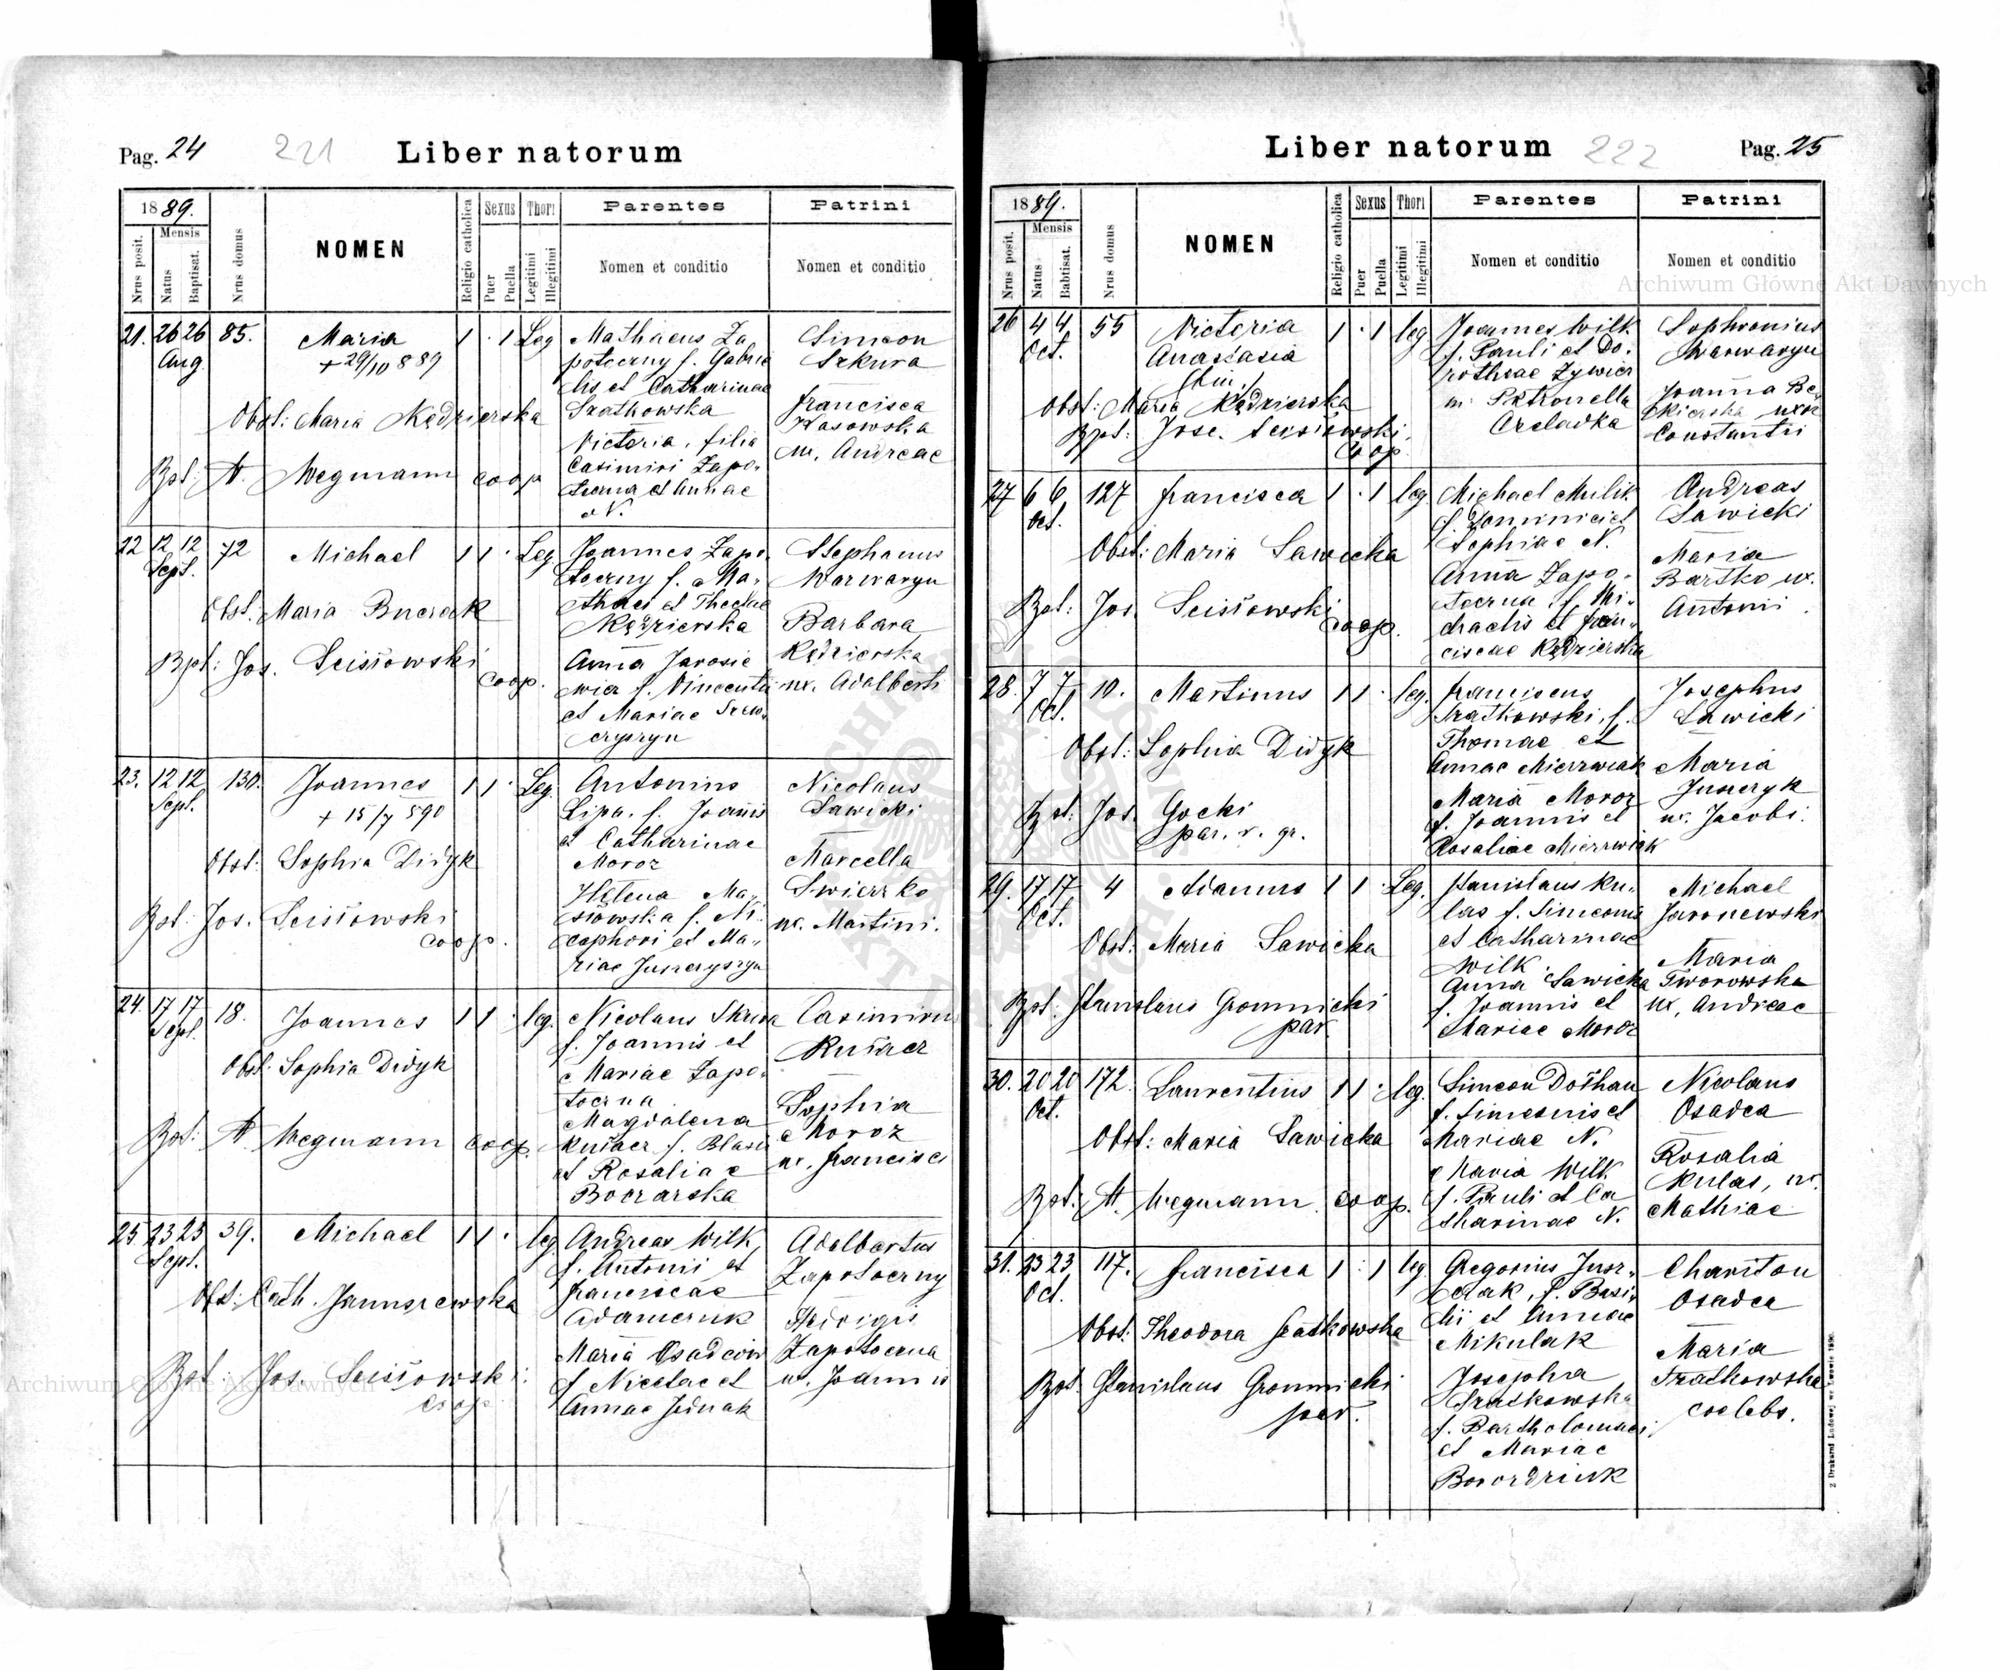 Pag. 24
221
Liber natorum
1889.
Mensis
Nrus posit.
Natus
Baptisat.
Nrus domus
NOMEN
Religio catholica
Sexus
Puer
Puella
Thori
Legitimi
Illegitimi
Parentes
Nomen et conditio
Patrini
Nomen et conditio
21. 26 26 85. Maria 1 · 1 Leg
Aug
+ 29/10 889
Obst: Maria Kędzierska
Bpt: A. Wegmann coop
Mathaeus Za
potoczny f. Gabrie
lis et Catharinae
Szatkowska
Victoria, filia
Casimiri Zapo-
toczna et Annae
N.
Simeon
Szkura
Francisca
Kasowska
ux. Andreae
22 12 12 72 Michael 1 1 · Leg
Sept.
Obst. Maria Buczak
Bpt: Jos. Scisłowski
coop.
Joannes Zapo-
toczny f. Ma-
thaei et Theclae
Kędzierska
Anna Jarosie
wicz f. Vincentii
et Mariae Szew-
czyszyn
Stephanus
Warwaryn
Barbara
Kędzierska
ux. Adalberti
23. 12 12 130. Joannes 1 1 · Leg.
Sept.
+ 15/7 890
Obst: Sophia Didyk
Bpt: Jos. Scisłowski
coop.
Antonius
Lipa, f. Joannis
et Catharinae
Moroz
Helena Ma-
słowska f. Ni-
cephori et Ma-
riae Juszczyszyn
Nicolaus
Sawicki
Marcella
Swierzko
ux. Martini.
24. 17 17 18. Joannes 1 1 · leg.
Sept.
Obst: Sophia Didyk
Bpt: A. Wegmann coop.
Nicolaus Skura
f. Joannis et
Mariae Zapo-
toczna
Magdalena
Kusacz f. Blasii
et Rosaliae
Boczarska
Casimirus
Kusacz
Sophia
Moroz
ux. Francisci
25. 23 23 39. Michael 1 1 · leg
Sept.
Obst: Cath. Januszewska
Bpt: Jos. Scisłowski
coop
Andreas Wilk,
f. Antonii et
Franciscae
Adamczuk
Maria Osadców
f. Nicetae et
Annae Jednak
Adalbertus
Zapotoczny
Hedvigis
Zapotoczna
ux. Joannis
Liber natorum
222
Pag. 25
1889.
Mensis
Nrus posit.
Natus
Babtisat.
Nrus domus
NOMEN
Religio catholica
Sexus
Puer
Puella
Thori
Legitimi
Illegitimi
Parentes
Nomen et conditio
Patrini
Nomen et conditio
26 4 4 55 Victoria 1 · 1 leg
Oct.
Anastasia
Obst: Maria Kędzierska
Bpt: Jos. Scisłowski
coop.
Joannes Wilk
f. Pauli et Do-
rotheae Żywicz
Petronella
Czeladka
Sophronius
Warwaryn
Joanna Be
kierska uxor
Constantii
27 6 6 127 Francisca 1 · 1 leg
Oct.
Obst: Maria Sawicka
Bpt: Jos. Scisłowski
coop.
Michael Mulik
f. Dominici et
Sophiae N.
Anna Zapo-
toczna f. Mi-
chaelis et Fran-
ciscae Kędzierska
Andreas
Sawicki
Maria
Bartko ux.
Antonii
28. 7 7 10. Martinus 1 1 · leg.
Oct.
Obst: Sophia Didyk
Bpt: Jos. Gocki
par. r. gr.
Franciscus
Szatkowski, f.
Thomae et
Annae Mierzwiak
Maria Moroz
f. Joannis et
Rosaliae Mierzwiak
Josephus
Sawicki
Maria
Juszczyk
ux. Jacobi.
29. 17 17 4 Adamus 1 1 · Leg.
Oct.
Obst: Maria Sawicka
Bpt: Stanislaus Gromnicki
par.
Stanislaus Ku-
las f. Simeonis
et Catharinae
Wilk
Anna Sawicka
f. Joannis et
Mariae Moroz
Michael
Jaroszewski
Maria
Tworowska
ux. Andreae
30. 20 20 172. Laurentius 1 1 · leg.
Oct.
Obst: Maria Sawicka
Bpt: A. Wegmann. coop.
Simeon Dołhan
f. Simeonis et
Mariae N.
Maria Wilk
f. Pauli et Ca
tharinae N.
Nicolaus
Osadca
Rosalia
Kulas, ux.
Mathiae
31. 23 23 117. Francisca 1 · 1 leg
Oct.
Obst: Theodora Szatkowska
Bpt: Stanislaus Gromnicki
par.
Gregorius Jusz-
czak, f. Basi-
lii et Annae
Mikulak
Josepha
Szatkowska
f. Bartholomaei
et Mariae
Borordziuk
Chariton
Osadca
Maria
Szatkowska
coelebs.
Z Drukarni Ludowej we Lwowie
Archiwum Główne Akt Dawnych
Archiwum Główne Akt Dawnych